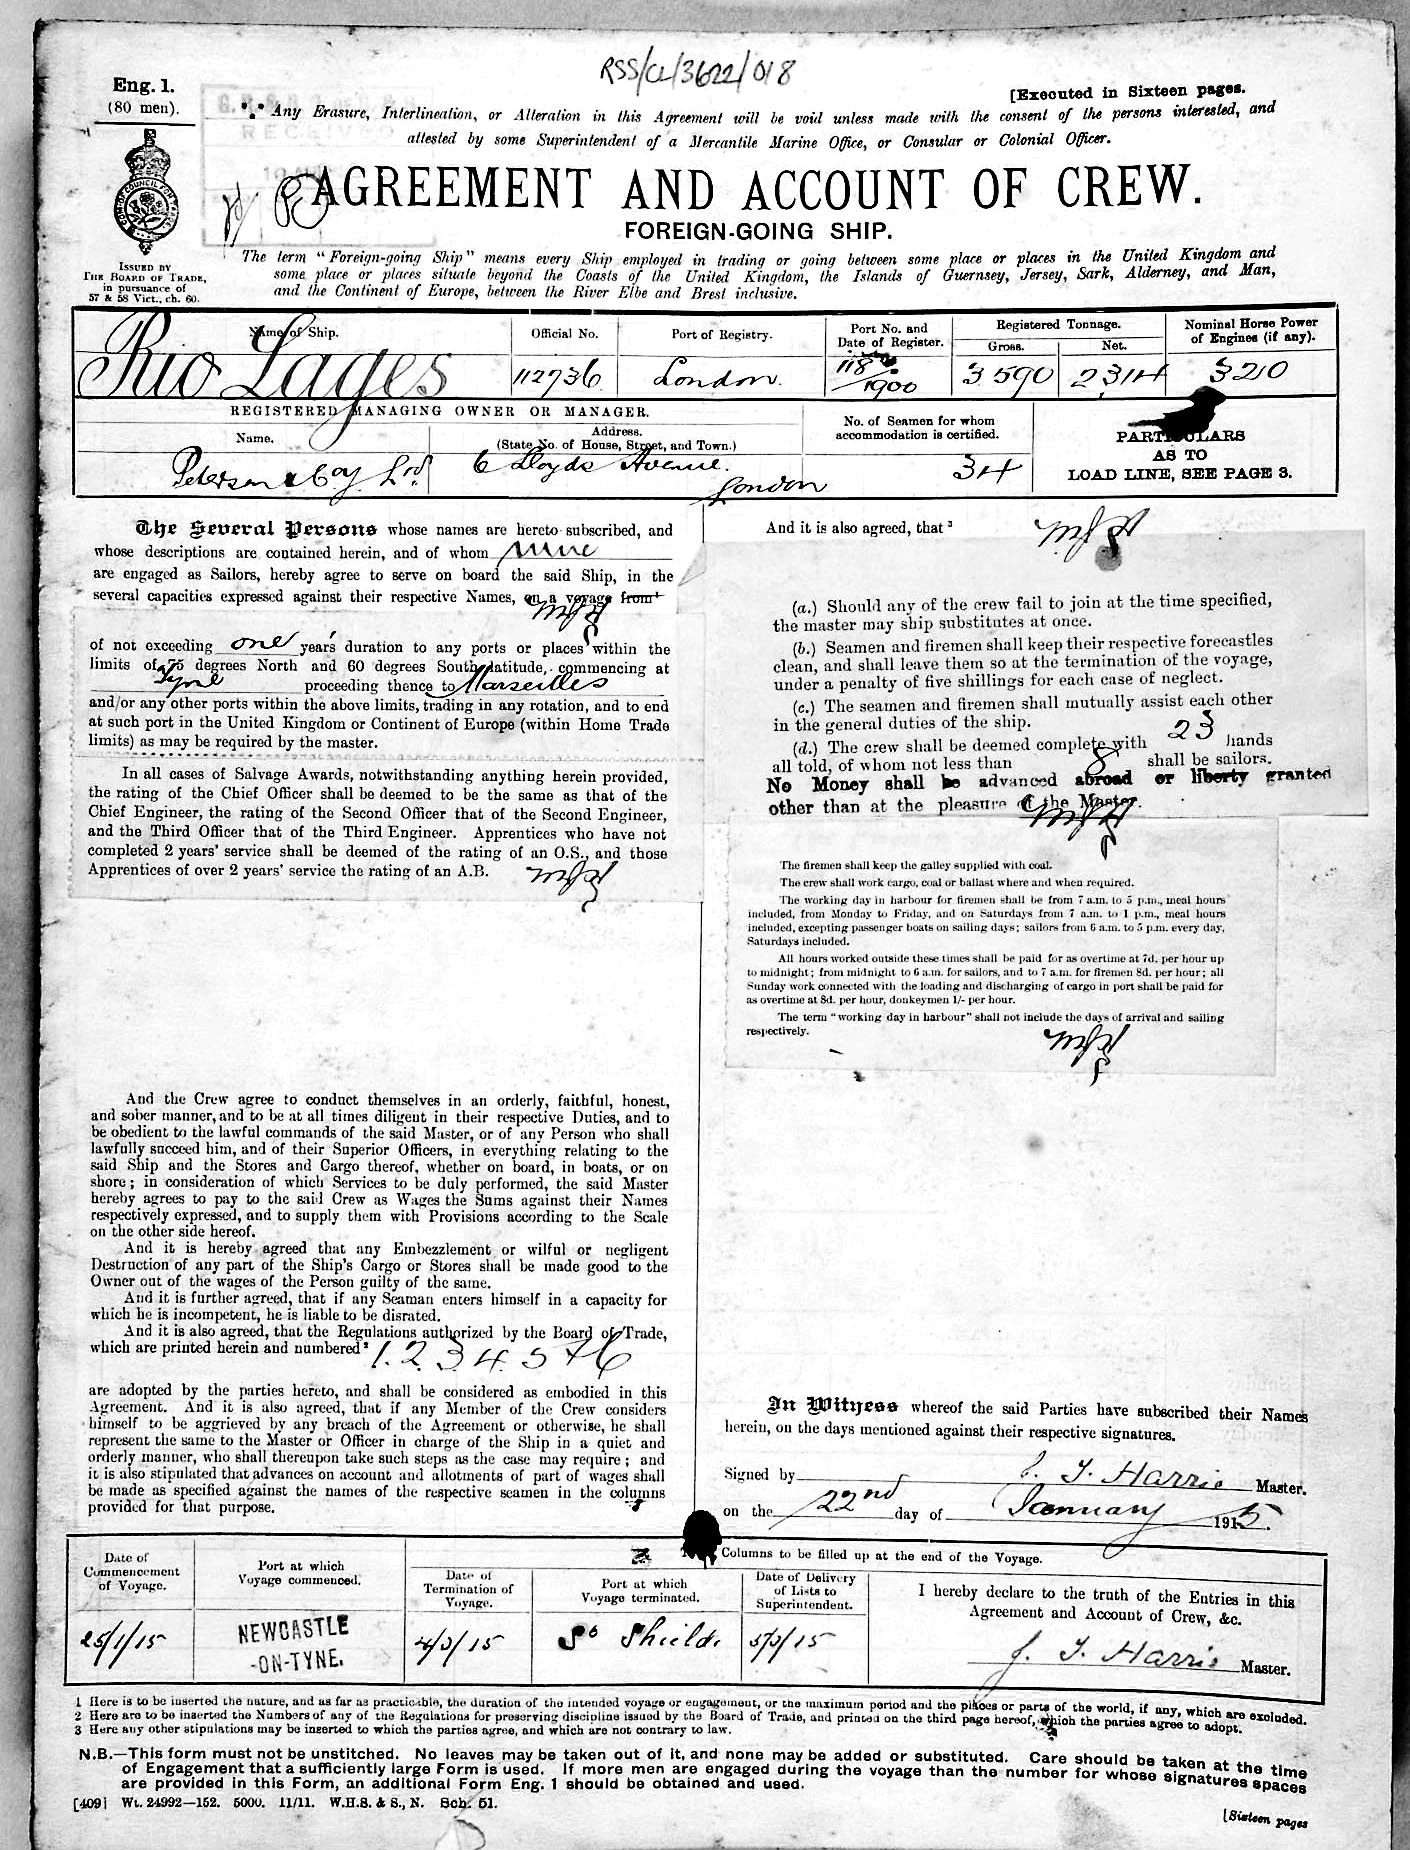 RSS/CL/3622/018
Eng. 1.
(80 men).
[Executed in Sixteen pages.
Any Erasure, Interlineation, or Alteration in this Agreement will be void unless made with the consent of the persons interested, and
attested by some Superintendent of a Mercantile Marine Office, or Consular or Colonial Officer.
RECEIVED
AGREEMENT AND ACCOUNT OF CREW.
FOREIGN-GOING SHIP.
ISSUED BY
THE BOARD OF TRADE,
in pursuance of
57 & 58 Vict., ch. 60.
The term "Foreign-going Ship" means every Ship employed in trading or going between some place or places in the United Kingdom and
some place or places situate beyond the Coasts of the United Kingdom, the Islands of Guernsey, Jersey, Sark, Alderney, and Man,
and the Continent of Europe, between the River Elbe and Brest inclusive.
Name of Ship.
Official No.
Port of Registry.
Port No. and
Date of Register.
Registered Tonnage.
Gross.
Net.
Nominal Horse Power
of Engines (if any).
Rio Lages
112736
London.
118
1900
3590
2314
320
REGISTERED MANAGING OWNER OR MANAGER.
Name.
Address.
(State No. of House, Street, and Town.)
No. of Seamen for whom
accommodation is certified.
PARTICULARS
AS TO
LOAD LINE, SEE PAGE 3.
Petersen & Coy Ltd.
6 Lloyds Avenue.
London
34
The Several Persons whose names are hereto subscribed, and
whose descriptions are contained herein, and of whom nine
are engaged as Sailors, hereby agree to serve on board the said Ship, in the
several capacities expressed against their respective Names, on a voyage from¹
of not exceeding one years' duration to any ports or places within the
limits of 75 degrees North and 60 degrees South latitude, commencing at
Tyne proceeding thence to Marseilles
and/or any other ports within the above limits, trading in any rotation, and to end
at such port in the United Kingdom or Continent of Europe (within Home Trade
limits) as may be required by the master.
In all cases of Salvage Awards, notwithstanding anything herein provided,
the rating of the Chief Officer shall be deemed to be the same as that of the
Chief Engineer, the rating of the Second Officer that of the Second Engineer,
and the Third Officer that of the Third Engineer. Apprentices who have not
completed 2 years' service shall be deemed of the rating of an O.S., and those
Apprentices of over 2 years' service the rating of an A.B.
And the Crew agree to conduct themselves in an orderly, faithful, honest,
and sober manner, and to be at all times diligent in their respective Duties, and to
be obedient to the lawful commands of the said Master, or of any Person who shall
lawfully succeed him, and of their Superior Officers, in everything relating to the
said Ship and the Stores and Cargo thereof, whether on board, in boats, or on
shore; in consideration of which Services to be duly performed, the said Master
hereby agrees to pay to the said Crew as Wages the Sums against their Names
respectively expressed, and to supply them with Provisions according to the Scale
on the other side hereof.
And it is hereby agreed that any Embezzlement or wilful or negligent
Destruction of any part of the Ship's Cargo or Stores shall be made good to the
Owner out of the wages of the Person guilty of the same.
And it is further agreed, that if any Seaman enters himself in a capacity for
which he is incompetent, he is liable to be disrated.
And it is also agreed, that the Regulations authorized by the Board of Trade,
which are printed herein and numbered² 1. 2. 3 4. 5 + 6
are adopted by the parties hereto, and shall be considered as embodied in this
Agreement. And it is also agreed, that if any Member of the Crew considers
himself to be aggrieved by any breach of the Agreement or otherwise, he shall
represent the same to the Master or Officer in charge of the Ship in a quiet and
orderly manner, who shall thereupon take such steps as the case may require; and
it is also stipulated that advances on account and allotments of part of wages shall
be made as specified against the names of the respective seamen in the columns
provided for that purpose.
And it is also agreed, that³
(a.) Should any of the crew fail to join at the time specified,
the master may ship substitutes at once.
(b.) Seamen and firemen shall keep their respective forecastles
clean, and shall leave them so at the termination of the voyage,
under a penalty of five shillings for each case of neglect.
(c.) The seamen and firemen shall mutually assist each other
in the general duties of the ship.
(d.) The crew shall be deemed complete with 23 hands
all told, of whom not less than 8 shall be sailors.
No Money shall be advanced abroad or liberty granted
other than at the pleasure of the Master.
The firemen shall keep the galley supplied with coal.
The crew shall work cargo, coal or ballast where and when required.
The working day in harbour for firemen shall be from 7 a.m. to 5 p.m., meal hours
included, from Monday to Friday, and on Saturdays from 7 a.m. to 1 p.m., meal hours
included, excepting passenger boats on sailing days; sailors from 6 a.m. to 5 p.m. every day,
Saturdays included.
All hours worked outside these times shall be paid for as overtime at 7d. per hour up
to midnight; from midnight to 6 a.m. for sailors, and to 7 a.m. for firemen 8d. per hour; all
Sunday work connected with the loading and discharging of cargo in port shall be paid for
as overtime at 8d. per hour, donkeymen 1/- per hour.
The term "working day in harbour" shall not include the days of arrival and sailing
respectively.
In Witness whereof the said Parties have subscribed their Names
herein, on the days mentioned against their respective signatures.
Signed by J. T. Harris Master.
on the 22nd day of January 1915.
Date of
Commencement
of Voyage.
Port at which
Voyage commenced.
Columns to be filled up at the end of the Voyage.
Date of
Termination of
Voyage.
Port at which
Voyage terminated.
Date of Delivery
of Lists to
Superintendent.
I hereby declare to the truth of the Entries in this
Agreement and Account of Crew, &c.
25/1/15
NEWCASTLE
-ON-TYNE.
4/3/15
So Shields
5/3/15
J. T. Harris Master.
1 Here is to be inserted the nature, and as far as practicable, the duration of the intended voyage or engagement, or the maximum period and the places or parts of the world, if any, which are excluded.
2 Here are to be inserted the Numbers of any of the Regulations for preserving discipline issued by the Board of Trade, and printed on the third page hereof, which the parties agree to adopt.
3 Here any other stipulations may be inserted to which the parties agree, and which are not contrary to law.
N.B.—This form must not be unstitched. No leaves may be taken out of it, and none may be added or substituted. Care should be taken at the time
of Engagement that a sufficiently large Form is used. If more men are engaged during the voyage than the number for whose signatures spaces
are provided in this Form, an additional Form Eng. 1 should be obtained and used.
[409] Wt. 24992—152. 5000. 11/11. W.H.S. & S., N. Sch. 51.
[Sixteen pages